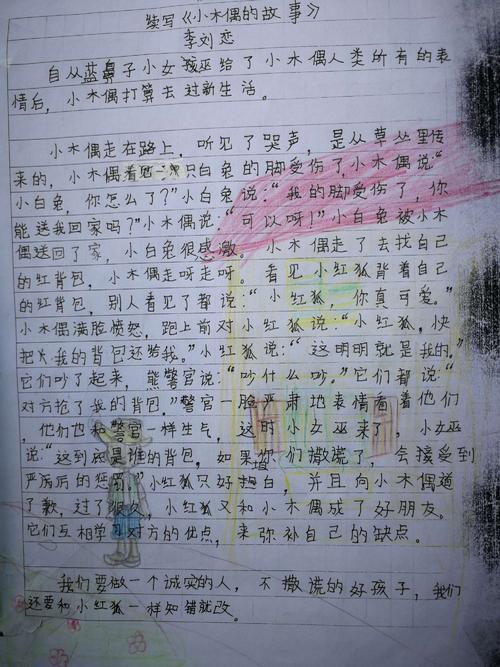 续写《小木偶的故事》
李刘恋
自从蓝鼻子小女巫给了小木偶人类所有的表
情后，小木偶打算去过新生活。
小木偶走在路上，听见了哭声，是从草丛里传
来的，小木偶看见一只白兔的脚受伤了小木偶说“
小白兔，你怎么了？”小白兔说：“我的脚受伤了，你
能送我回家吗？”小木偶说：“可以呀！”小白兔被小木
偶送回了家，小白兔很感激。小木偶走了去找自己
的红背包，小木偶走呀走呀。看见小红狐背着自己
的红背包，别人看见了都说：“小红狐，你真可爱。”
小木偶满脸愤怒，跑上前对小红狐说：“小红狐，快
把我的背包还给我。”小红狐说：“这明明就是我的。”
它们吵了起来，熊警官说：“吵什么吵。”它们都说：“
对方抢了我的背包。”警官一脸严肃地表情看着他们
，他们也和警官一样生气，这时小女巫来了，小女巫
说：“这到底是谁的背包，如果你们撒谎了，会接受到
严厉的惩罚。”小红狐只好坦白，并且向小木偶道
了歉，过了很久，小红狐又和小木偶成了好朋友。
它们互相学习对方的优点，来弥补自己的缺点。
我们要做一个诚实的人，不撒谎的好孩子，我们
还要和小红狐一样知错就改。